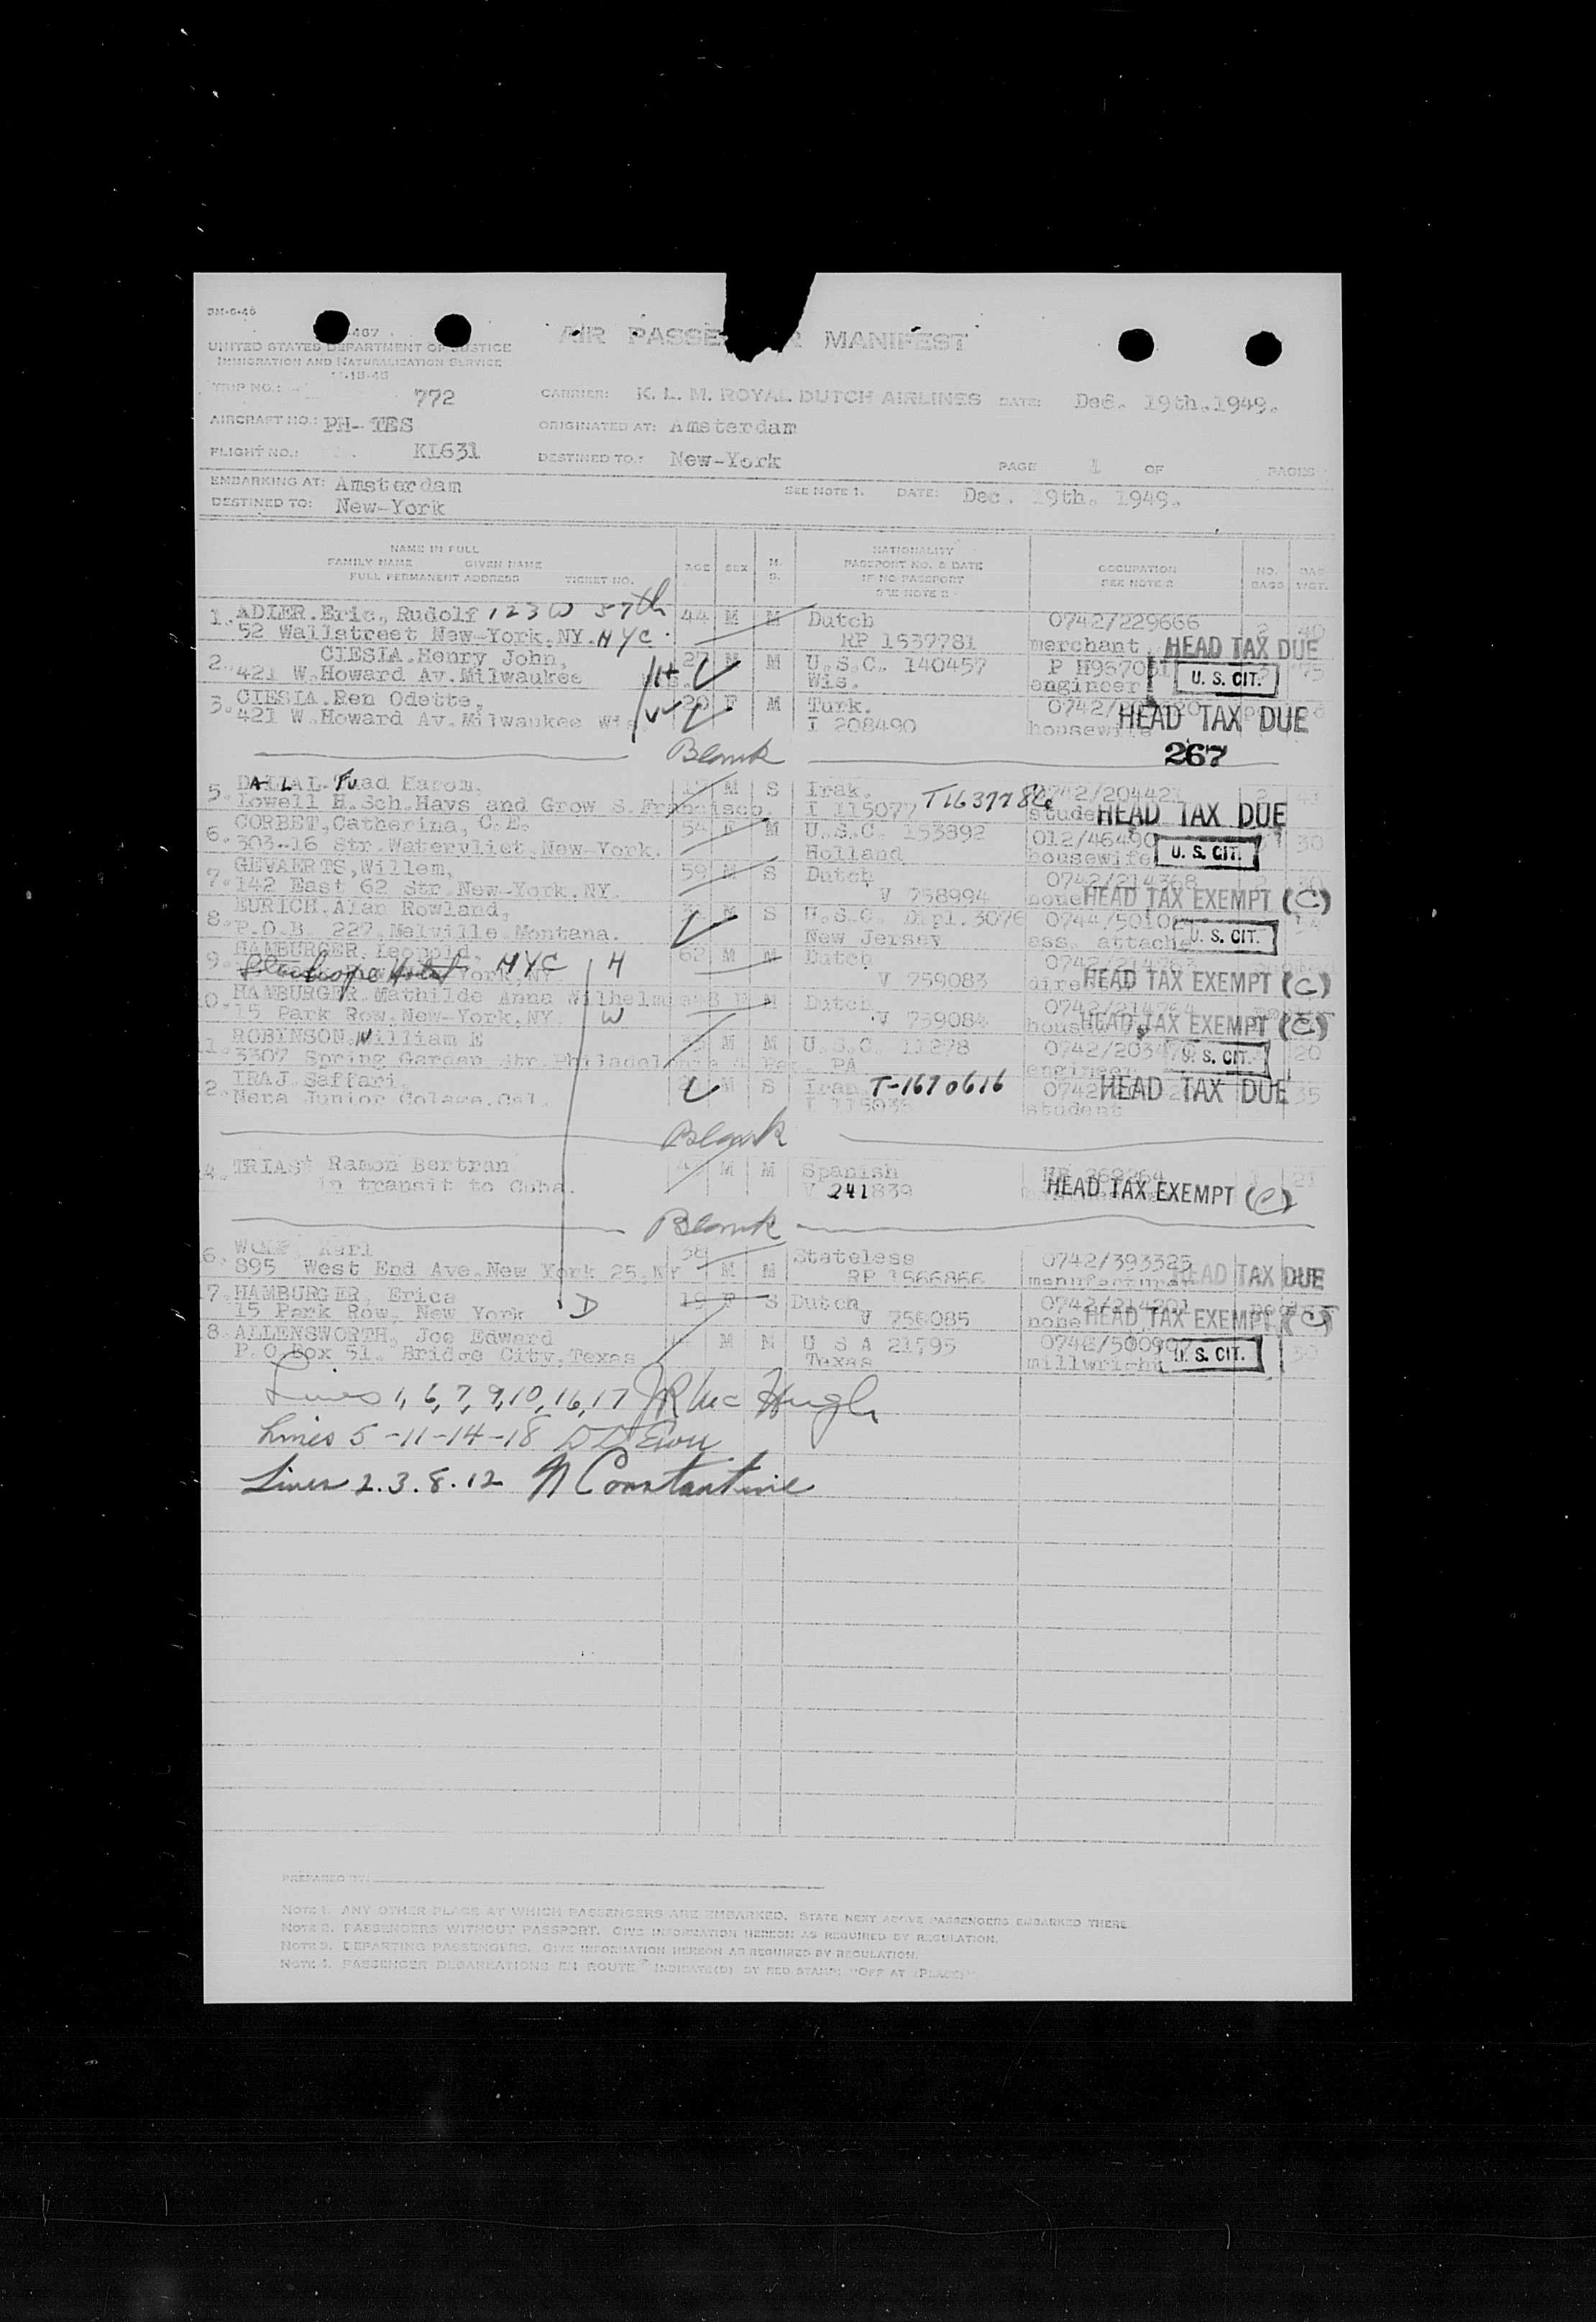 3M-6-46
UNITED STATES DEPARTMENT OF JUSTICE
IMMIGRATION AND NATURALIZATION SERVICE
11-18-45
AIR PASSE R MANIFEST
TRIP NO.: 772 CARRIER: K. L. M. ROYAL DUTCH AIRLINES DATE: Dec. 19th.1949.
AIRCRAFT NO.: PH- TES ORIGINATED AT: Amsterdam
FLIGHT NO.: KL631 DESTINED TO.: New-York PAGE 1 OF PAGES
EMBARKING AT: Amsterdam SEE NOTE 1. DATE: Dec. 19th. 1949.
DESTINED TO: New-York
NAME IN FULL
FAMILY NAME GIVEN NAME
FULL PERMANENT ADDRESS TICKET NO.
AGE SEX M. S.
NATIONALITY
PASSPORT NO. & DATE
IF NO PASSPORT
SEE NOTE 2
OCCUPATION
SEE NOTE 2
NO. BAGS BAG WGT.
1. ADLER.Eric, Rudolf 123 W 57th 44 M M Dutch 0742/229666 2 40
52 Wallstreet New-York.NY. NYC. RP 1537781 merchant HEAD TAX DUE
2. CIESIA.Henry John, 27 M M U.S.C. 140457 P H957051 75
421 W.Howard Av.Milwaukee H Wis. engineer U. S. CIT.
3. CIESIA.Ren Odette, 20 F M Turk. 0742/
421 W.Howard Av.Milwaukee Wis W I 208490 housewife HEAD TAX DUE
Blank 267
5. DALLAL. Fuad Harom. M S Irak. 0742/204421 2 41
Lowell H.Sch.Hays and Grow S.Francisco. I 115077 T1637786 HEAD TAX DUE
6. CORBET,Catherina, C.E. 54 F M U.S.C. 153892 012/46490 30
303-16 Str.Watervliet.New-York. Holland housewife U. S. CIT.
7. GEVAERTS,Willem, 59 M S Dutch 0742/214368
142 East 62 Str.New-York.NY. V 758994 none HEAD TAX EXEMPT (C)
8. EURICH.Alan Rowland, M S U.S.C. Dipl.3076 0744/50102
P.O.B. 227.Melville.Montana. New Jersey ass. attache U. S. CIT.
9. HAMBURGER.Leopold, 62 M M Dutch
NYC H V 759083 HEAD TAX EXEMPT (C)
0. HAMBURGER.Mathilde Anna Wilhelm M Dutch 0742/214264
15 Park Row.New-York.NY. W V 759084 HEAD TAX EXEMPT (C)
1. ROBINSON.William E M M U.S.C. 11278 0742/2034
3307 Spring Garden Str.Philadelphia 4 PA engineer U. S. CIT. 20
2. IRAJ Saffari. M S Iran. T-1670616 0742 35
Nera Junior Colage.Cal. student HEAD TAX DUE
Blank
4. TRIAS Ramon Bertran M M Spanish 21
in transit to Cuba. V 241839 HEAD TAX EXEMPT (C)
Blank
6. Karl M M Stateless 0742/393325
895 West End Ave.New York 25.NY RP 1566866 HEAD TAX DUE
7. HAMBURGER, Erica 19 F S Dutch 0742/214201
15 Park Row, New York D V 756085 none HEAD TAX EXEMPT (C)
8. ALLENSWORTH, Joe Edward M M U S A 21795 0742/500907 30
P.O.Box 51. Bridge City.Texas Texas millwright U. S. CIT.
Lines 1, 6, 7, 9, 10, 16, 17 JR McHugh
Lines 5 -11-14-18
Lines 2.3.8.12 N Constantine
PREPARED BY:
NOTE 1. ANY OTHER PLACE AT WHICH PASSENGERS ARE EMBARKED. STATE NEXT ABOVE PASSENGERS EMBARKED THERE
NOTE 2. PASSENGERS WITHOUT PASSPORT. GIVE INFORMATION HEREON AS REQUIRED BY REGULATION.
NOTE 3. DEPARTING PASSENGERS. GIVE INFORMATION HEREON AS REQUIRED BY REGULATION.
NOTE 4. PASSENGER DEBARKATIONS EN ROUTE INDICATE(D) BY RED STAMP: "OFF AT (PLACE)"